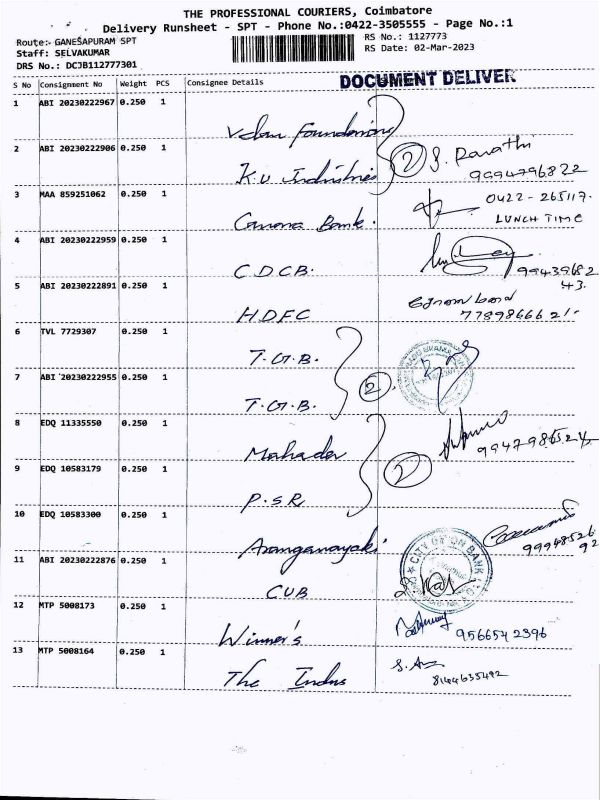 THE PROFESSIONAL COURIERS, Coimbatore
Delivery Runsheet - SPT - Phone No.:0422-3505555 - Page No.:1
Route:- GANESAPURAM SPT
RS No.: 1127773
Staff: SELVAKUMAR
RS Date: 02-Mar-2023
DRS No.: DCJB112777301
DOCUMENT DELIVER
S No Consignment No Weight PCS Consignee Details
1 ABI 20230222967 0.250 1
2 ABI 20230222906 0.250 1 K.V Industries 2 S. Parathi
9994796822
3 MAA 859251062 0.250 1 Canara Bank. 0422 - 265117.
LUNCH TIME
4 ABI 20230222959 0.250 1 C.D.C.B.
5 ABI 20230222891 0.250 1 H.D.F.C
6 TVL 7729307 0.250 1 T.G.B.
7 ABI 20230222955 0.250 1 T.G.B. 2
8 EDQ 11335550 0.250 1 Mahadev
9 EDQ 10583179 0.250 1 P.S.R 2
10 EDQ 10583300 0.250 1 Aranganayaki
11 ABI 20230222876 0.250 1 CUB
12 MTP 5008173 0.250 1 Winner's 9566542396
13 MTP 5008164 0.250 1 The Indus 8144635492